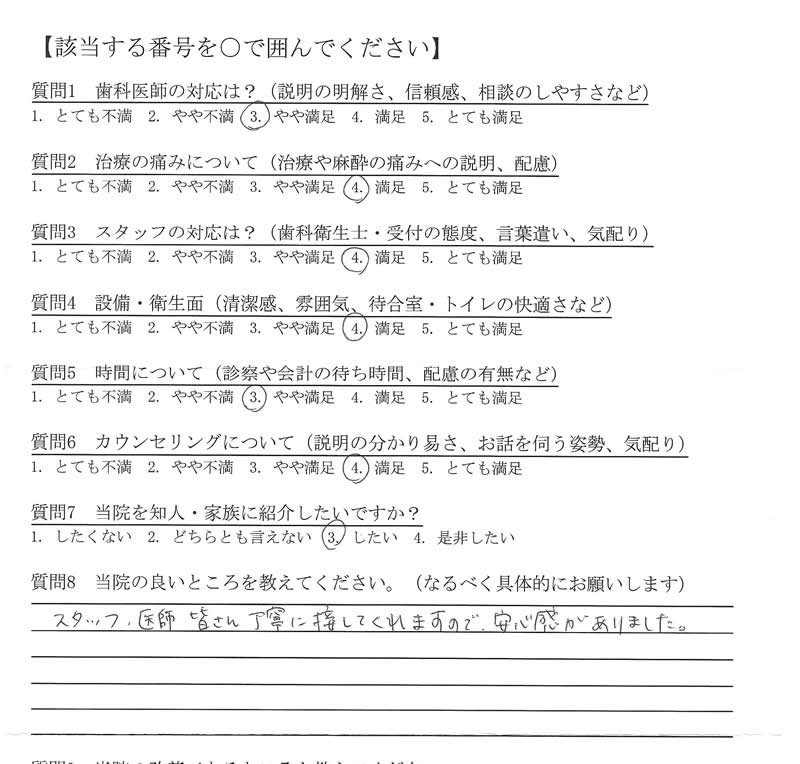 【該当する番号を○で囲んでください】
質問1 歯科医師の対応は？（説明の明解さ、信頼感、相談のしやすさなど）
1. とても不満 2. やや不満 3. やや満足 4. 満足 5. とても満足
質問2 治療の痛みについて（治療や麻酔の痛みへの説明、配慮）
1. とても不満 2. やや不満 3. やや満足 4. 満足 5. とても満足
質問3 スタッフの対応は？（歯科衛生士・受付の態度、言葉遣い、気配り）
1. とても不満 2. やや不満 3. やや満足 4. 満足 5. とても満足
質問4 設備・衛生面（清潔感、雰囲気、待合室・トイレの快適さなど）
1. とても不満 2. やや不満 3. やや満足 4. 満足 5. とても満足
質問5 時間について（診察や会計の待ち時間、配慮の有無など）
1. とても不満 2. やや不満 3. やや満足 4. 満足 5. とても満足
質問6 カウンセリングについて（説明の分かり易さ、お話を伺う姿勢、気配り）
1. とても不満 2. やや不満 3. やや満足 4. 満足 5. とても満足
質問7 当院を知人・家族に紹介したいですか？
1. したくない 2. どちらとも言えない 3. したい 4. 是非したい
質問8 当院の良いところを教えてください。（なるべく具体的にお願いします）
スタッフ、医師 皆さん丁寧に接してくれますので、安心感がありました。